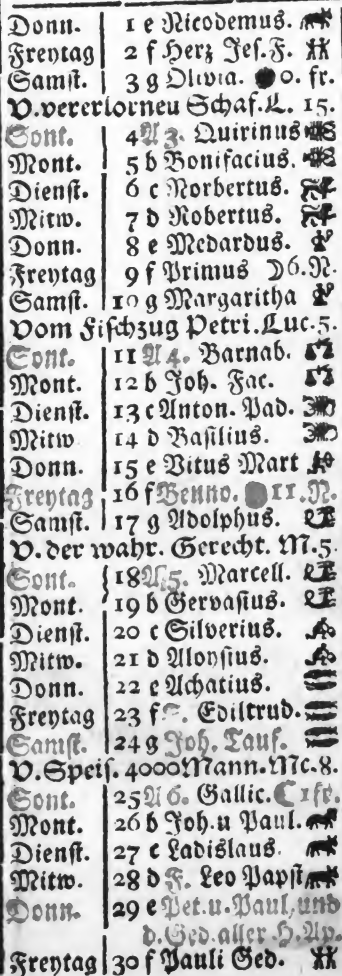 Donn. 1 e Nicodemus.
Freytag 2 f Herz Jes. F.
Samst. 3 g Olivia. 0. fr.
V. vererlorneu Schaf. L. 15.
Sont. 4 A 3. Quirinus
Mont. 5 b Bonifacius.
Dienst. 6 c Norbertus.
Mitw. 7 d Robertus.
Donn. 8 e Medardus.
Freytag 9 f Primus ☽ 6. N.
Samst. 10 g Margaritha
Vom Fischzug Petri. Luc. 5.
Sont. 11 A 4. Barnab.
Mont. 12 b Joh. Fac.
Dienst. 13 c Anton. Pad.
Mitw 14 d Basilius.
Donn. 15 e Vitus Mart
Freytag 16 f Benno. 11. N.
Samst. 17 g Adolphus.
V. der wahr. Gerecht. M. 5.
Sont. 18 A 5. Marcell.
Mont. 19 b Gervasius.
Dienst. 20 c Silverius.
Mitw. 21 d Aloysius.
Donn. 22 e Achatius.
Freytag 23 f F. Ediltrud.
Samst. 24 g Joh. Tauf.
V. Speis. 4000 Mann. Mc. 8.
Sont. 25 A 6. Gallic. ☾ 1 fr.
Mont. 26 b Joh. u Paul.
Dienst. 27 c Ladislaus
Mitw. 28 d F. Leo Papst
Donn. 29 e Pet. u. Paul, und
d. Ged. aller H. Ap.
Freytag 30 f Pauli Ged.